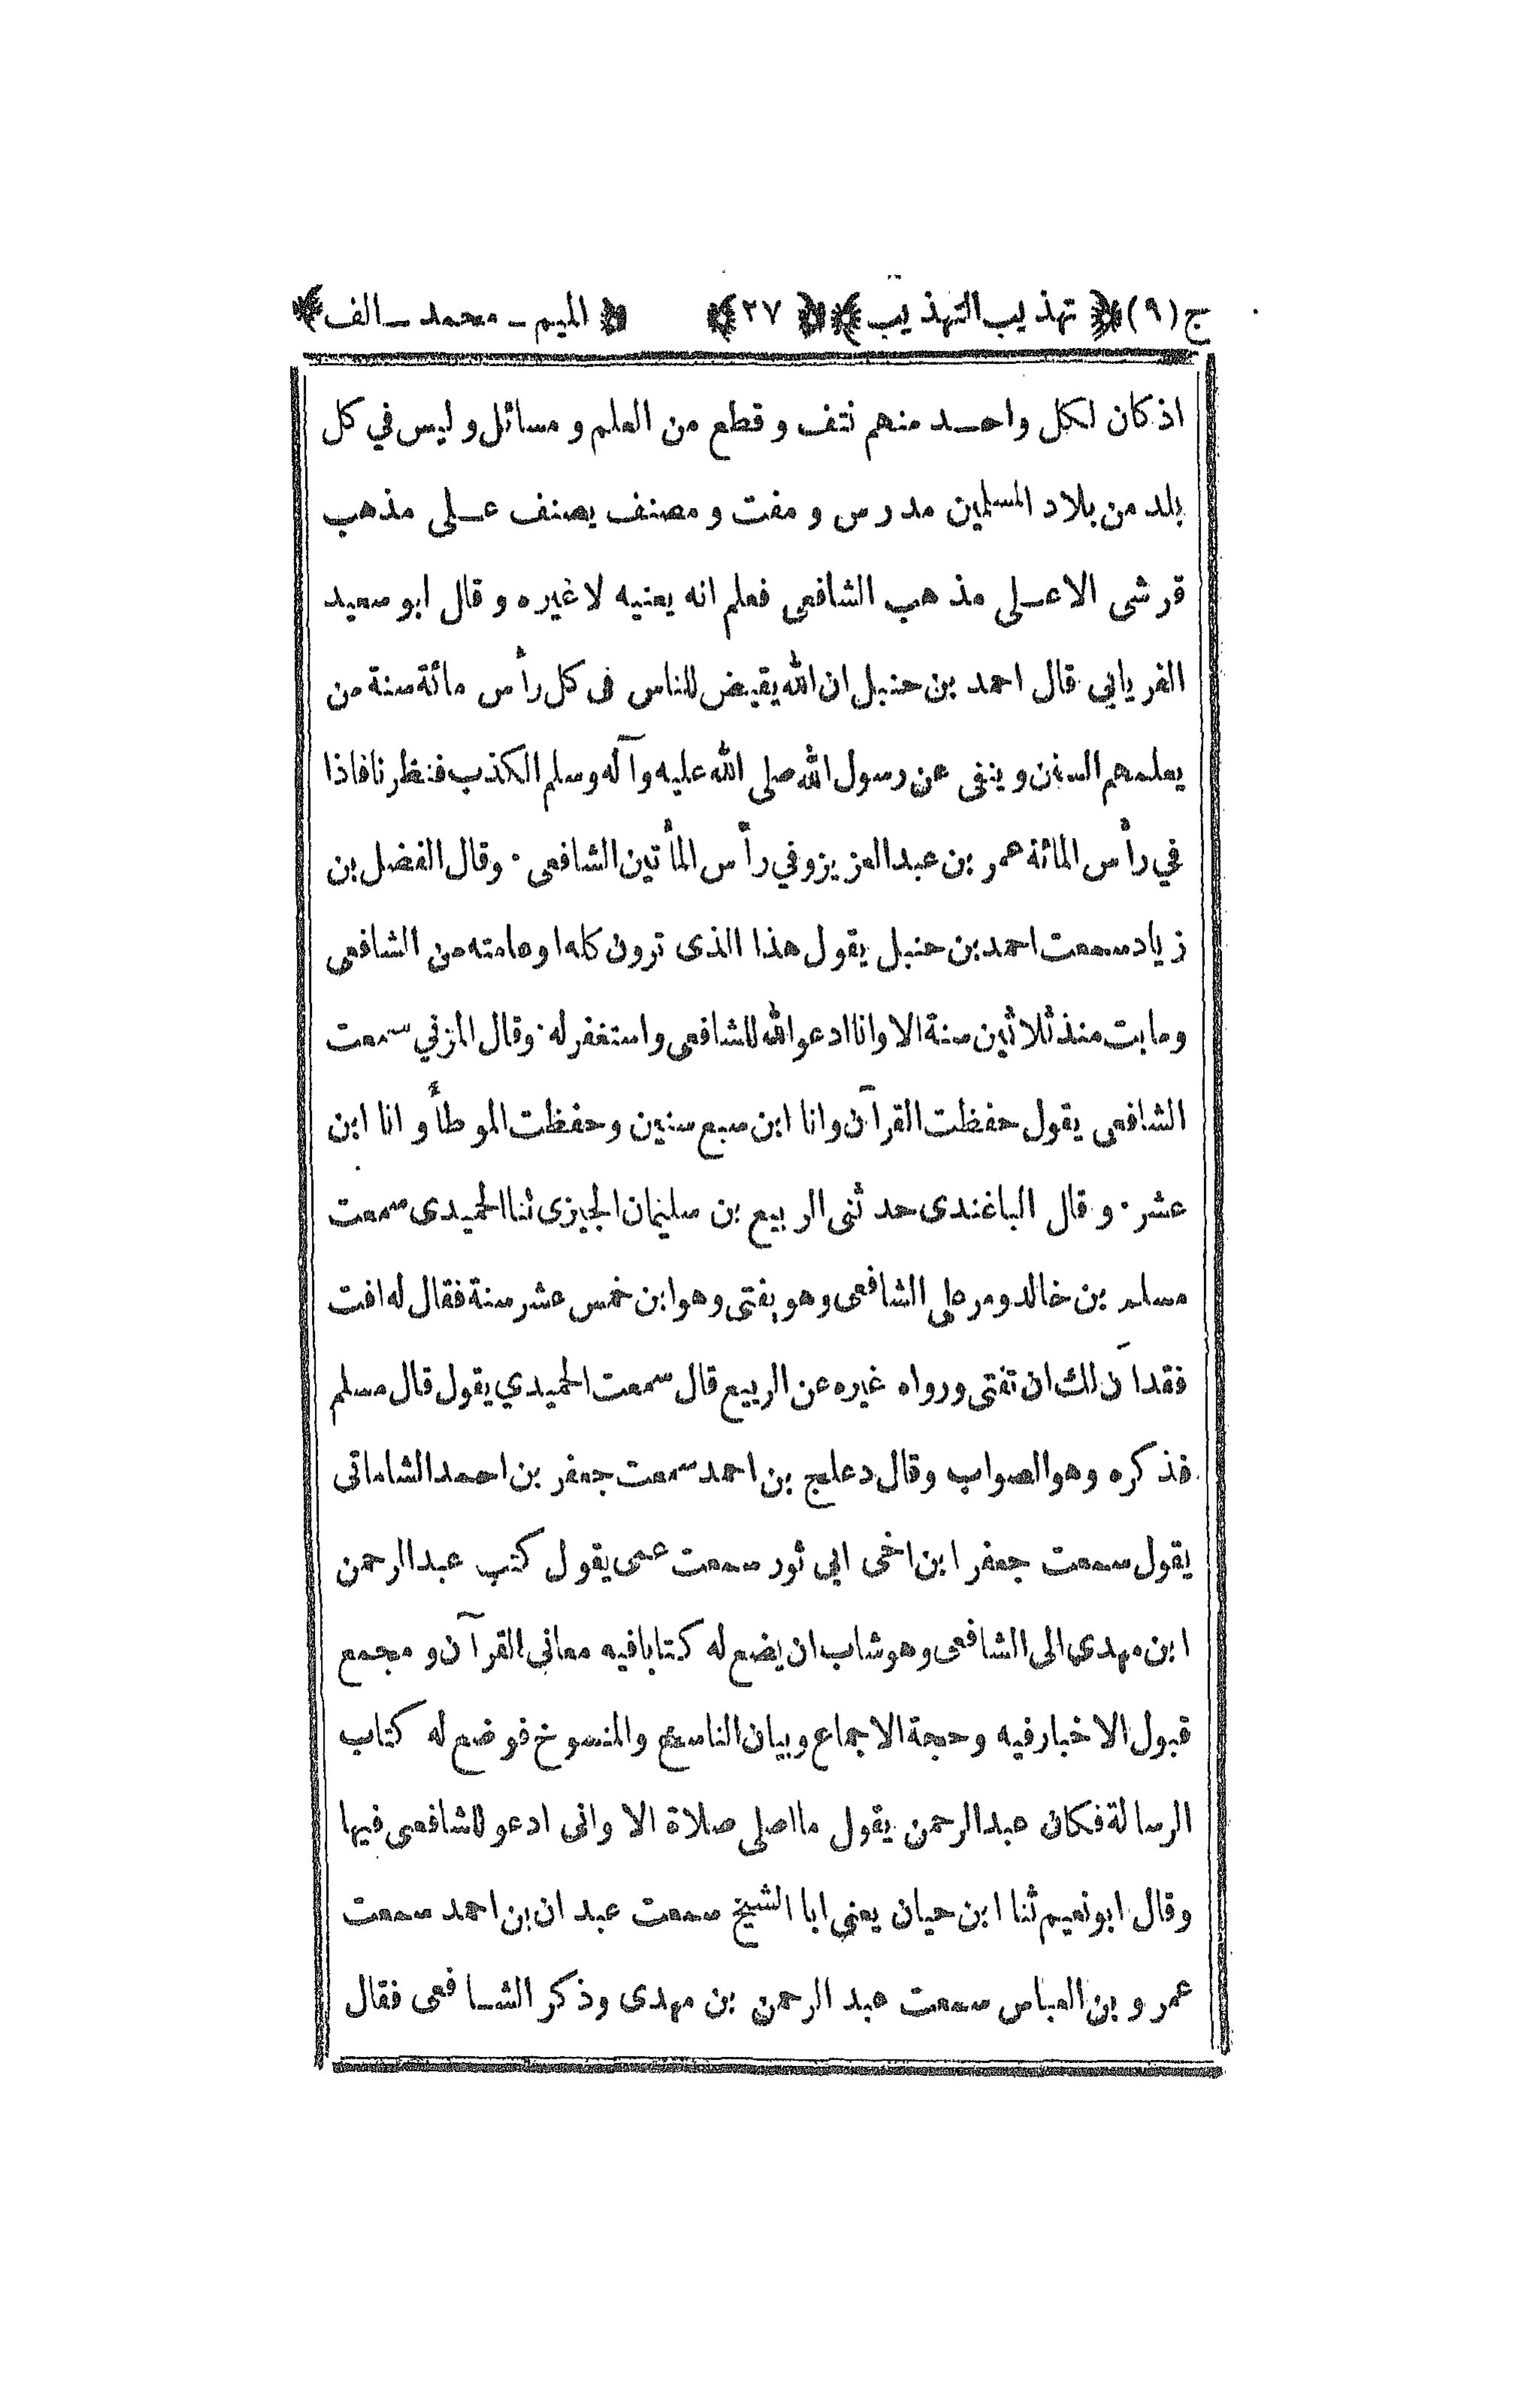 ج (٩) ﴿ تهذيب التهذيب ﴾ ﴿ ٢٧ ﴾ ﴿ الميم - محمد - الف ﴾
اذ كان لكل واحد منهم نتف و قطع من العلم و مسائل و ليس في كل
بلد من بلاد المسلمين مدرس و مفت و مصنف يصنف على مذهب
قرشى الا على مذهب الشافعى فعلم انه يعنيه لا غيره و قال ابو سعيد
الفريابي قال احمد بن حنبل ان الله يقيض للناس فى كل رأس مائة سنة من
يعلمهم السنن و ينفى عن رسول الله صلى الله عليه وآله وسلم الكذب فنظرنا فاذا
في رأس المائة عمر بن عبد العزيز وفي رأس المأتين الشافعى · وقال الفضل بن
زياد سمعت احمد بن حنبل يقول هذا الذى ترون كله او عامته من الشافعى
وما بت منذ ثلاثين سنة الا وانا ادعو الله للشافعى واستغفر له · وقال المزني سمعت
الشافعى يقول حفظت القرآن وانا ابن سبع سنين وحفظت الموطأ و انا ابن
عشر · و قال الباغندى حدثنى الربيع بن سليمان الجيزى ثنا الحميدى سمعت
مسلم بن خالد ومر على الشافعى وهو يفتى وهو ابن خمس عشر سنة فقال له افت
فقد آن لك ان تفتى ورواه غيره عن الربيع قال سمعت الحميدي يقول قال مسلم
فذكره وهو الصواب وقال دعلج بن احمد سمعت جعفر بن احمد الشاماتى
يقول سمعت جعفر ابن اخى ابي ثور سمعت عمى يقول كتب عبد الرحمن
ابن مهدي الى الشافعى وهو شاب ان يضع له كتابا فيه معانى القرآن و مجمع
قبول الاخبار فيه وحجة الاجماع وبيان الناسخ والمنسوخ فوضع له كتاب
الرسالة فكان عبد الرحمن يقول ما اصلى صلاة الا وانى ادعو للشافعى فيها
وقال ابو نعيم ثنا ابن حيان يعنى ابا الشيخ سمعت عبدان بن احمد سمعت
عمرو بن العباس سمعت عبد الرحمن بن مهدى وذكر الشافعى فقال